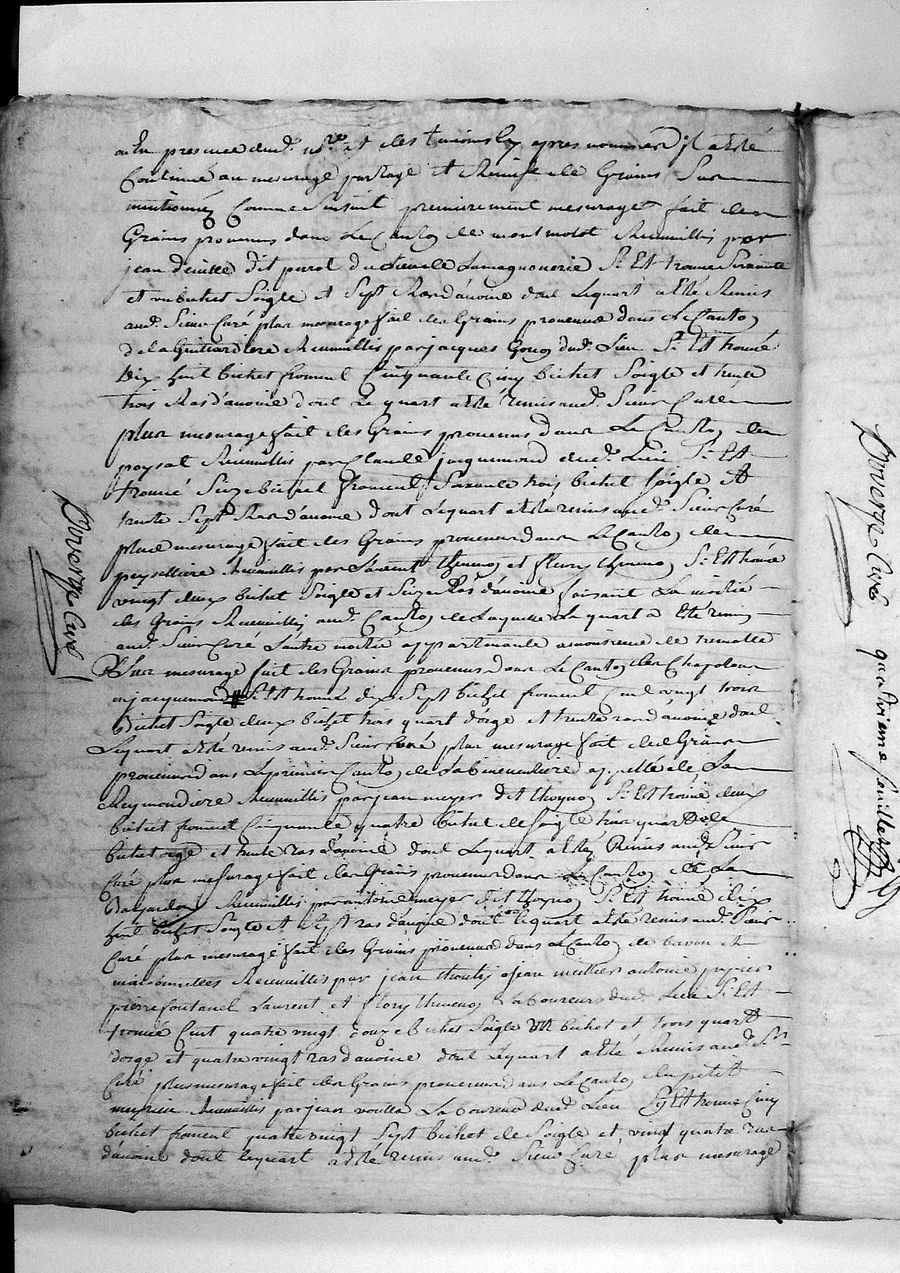 en presence dud. et des temoins cy apres nommes il a esté
continué au mesurage partage et Remise de Grains sur
mentionnéz Comme sensuit premierement mesurage fait de
Grains provenus dans Le Canto, de montmolot Recueillis par
jean deville dit parot du lieu de Lamagnonerie S'est trouvé soixante
et un bichet Soigle et Sept Ras d'avoine dont Lequart a Eté Remis
aud. Sieur Curé plus mesurage fait des Grains provenus dans Le Canto,
de la Guittardiere Recueillis par jacques Goco dud. Lieu S'est trouvé
dix huit bichet froment Cinquante Cinq bichet Soigle et trente
trois Ras d'avoine dont Le quart a été remis aud. Sieur Curé
plus mesurage fait des Grains provenus dans Le Canto, de
paysat Recueillis par Claude jacquemond dud. Lieu S'est
trouvé Seize bichet froment Soixante trois bichet Soigle et
trente Sept Ras d'avoine dont Lequart a été remis aud. Sieur Curé
plus mesurage fait des Grains provenus dans Le Canto, de
peyselliere Recueillis par Laurent thevno, et fleury thevno, S'est trouvé
vingt deux bichet Soigle et Seize Ras d'avoine faisant La moitié
des Grains Recueillis aud. Canto, de Laquelle Le quart a Eté remis
aud. Sieur Curé L'autre moitié appartenante a monsieur de
Plus mesurage fait des Grains provenus dans Le Canto, des Chapeloux
jacquemond # S'est trouvé dix Sept bichet froment Cent vingt trois
Bichet Soigle deux bichet trois quart d'orge et trente ras d'avoine dont
Lequart a été remis aud. Sieur Curé plus mesurage fait des Grains
provenus dans Le premier Canto, de La appellé de La
Reymondiere Recueillis par jean meyer dit thoyno, S'est trouvé deux
bichet froment Cinquante quatre bichet de Soigle trois quart de
bichet orge et trente ras d'avoine dont Lequart a Eté Remis aud. Sieur
Curé plus mesurage fait des Grains provenus dans Le Canto, de La
Recueillis par antoine meyer dit thoyno, S'est trouvé dix
huit bichet Soigle et Sept ras d'avoine dont Lequart a été remis aud. Sieur
Curé plus mesurage fait des Grains provenus dans Le Canto, de bavon et
maisonnettes Recueillis par jean jean meillier antoine
pierre fontanel Laurent et flory thevno, Laboureurs dud. Lieu S'est
trouvé Cent quatre vingt douze bichet Soigle un bichet et trois quart
d'orge et quatre vingt ras d'avoine dont Lequart a été Remis aud. Sr
Curé plus mesurage fait des Grains provenus dans Le Canto, du petit
Recueillis par jean voulla Laboureur dud. Lieu S'est trouvé Cinq
bichet froment quatre vingt Sept bichet de Soigle et vingt quatre ras
d'avoine dont Lequart a été remis aud. Sieur Curé plus mesurage
Duverze Curé
Duverze Curé
quatrieme feuillet